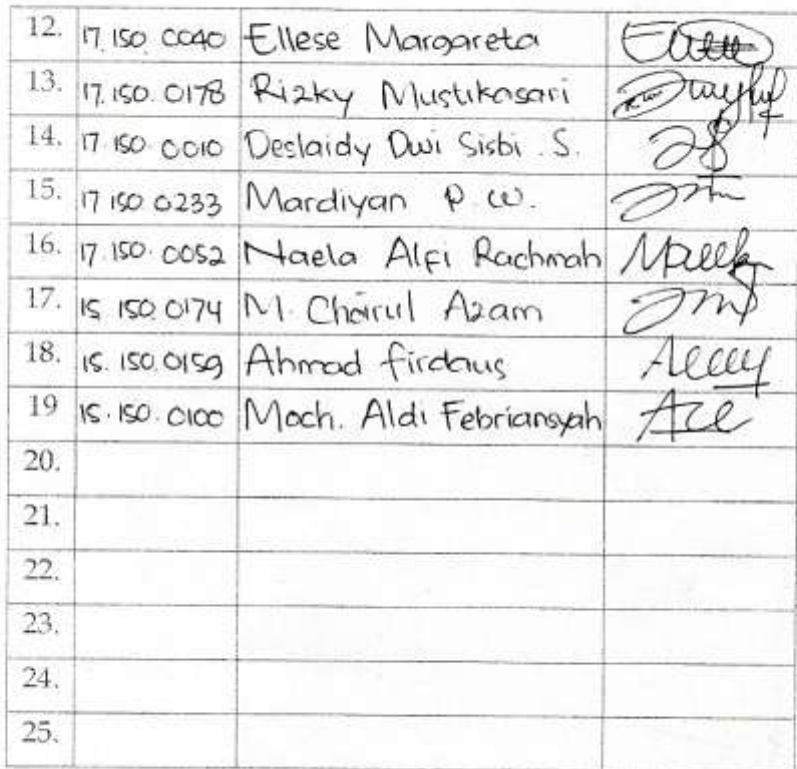 12. 17.150.0040 Ellese Margareta
13. 17.150.0178 Rizky Mustikasari
14. 17.150.0010 Deslaidy Dwi Sisbi .S.
15. 17 150 0233 Mardiyan P.W.
16. 17.150.0052 Naela Alfi Rachmah
17. 15 150 0174 M. Choirul Azam
18. 15.150.0159 Ahmad firdaus
19 15.150.0100 Moch. Aldi Febriansyah
20.
21.
22.
23.
24.
25.